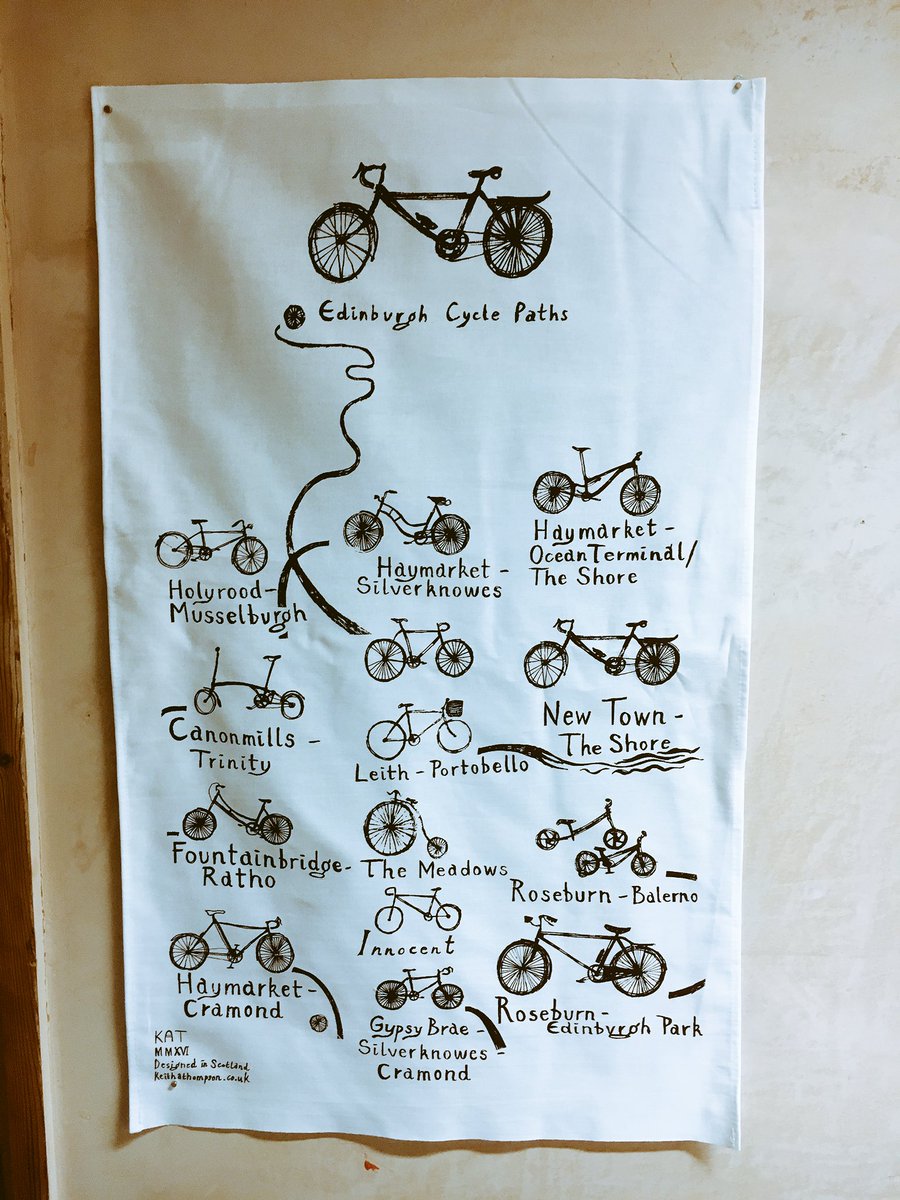 Edinburgh Cycle Paths
Haymarket -
Ocean Terminal/
The Shore
Haymarket -
Silverknowes
Holyrood -
Musselburgh
New Town -
The Shore
Canonmills -
Trinity
Leith - Portobello
Fountainbridge -
Ratho
The Meadows
Roseburn - Balerno
Innocent
Haymarket -
Cramond
Roseburn -
Edinburgh Park
Gypsy Brae -
Silverknowes -
Cramond
KAT
MMXVI
Designed in Scotland
Keithathompson.co.uk